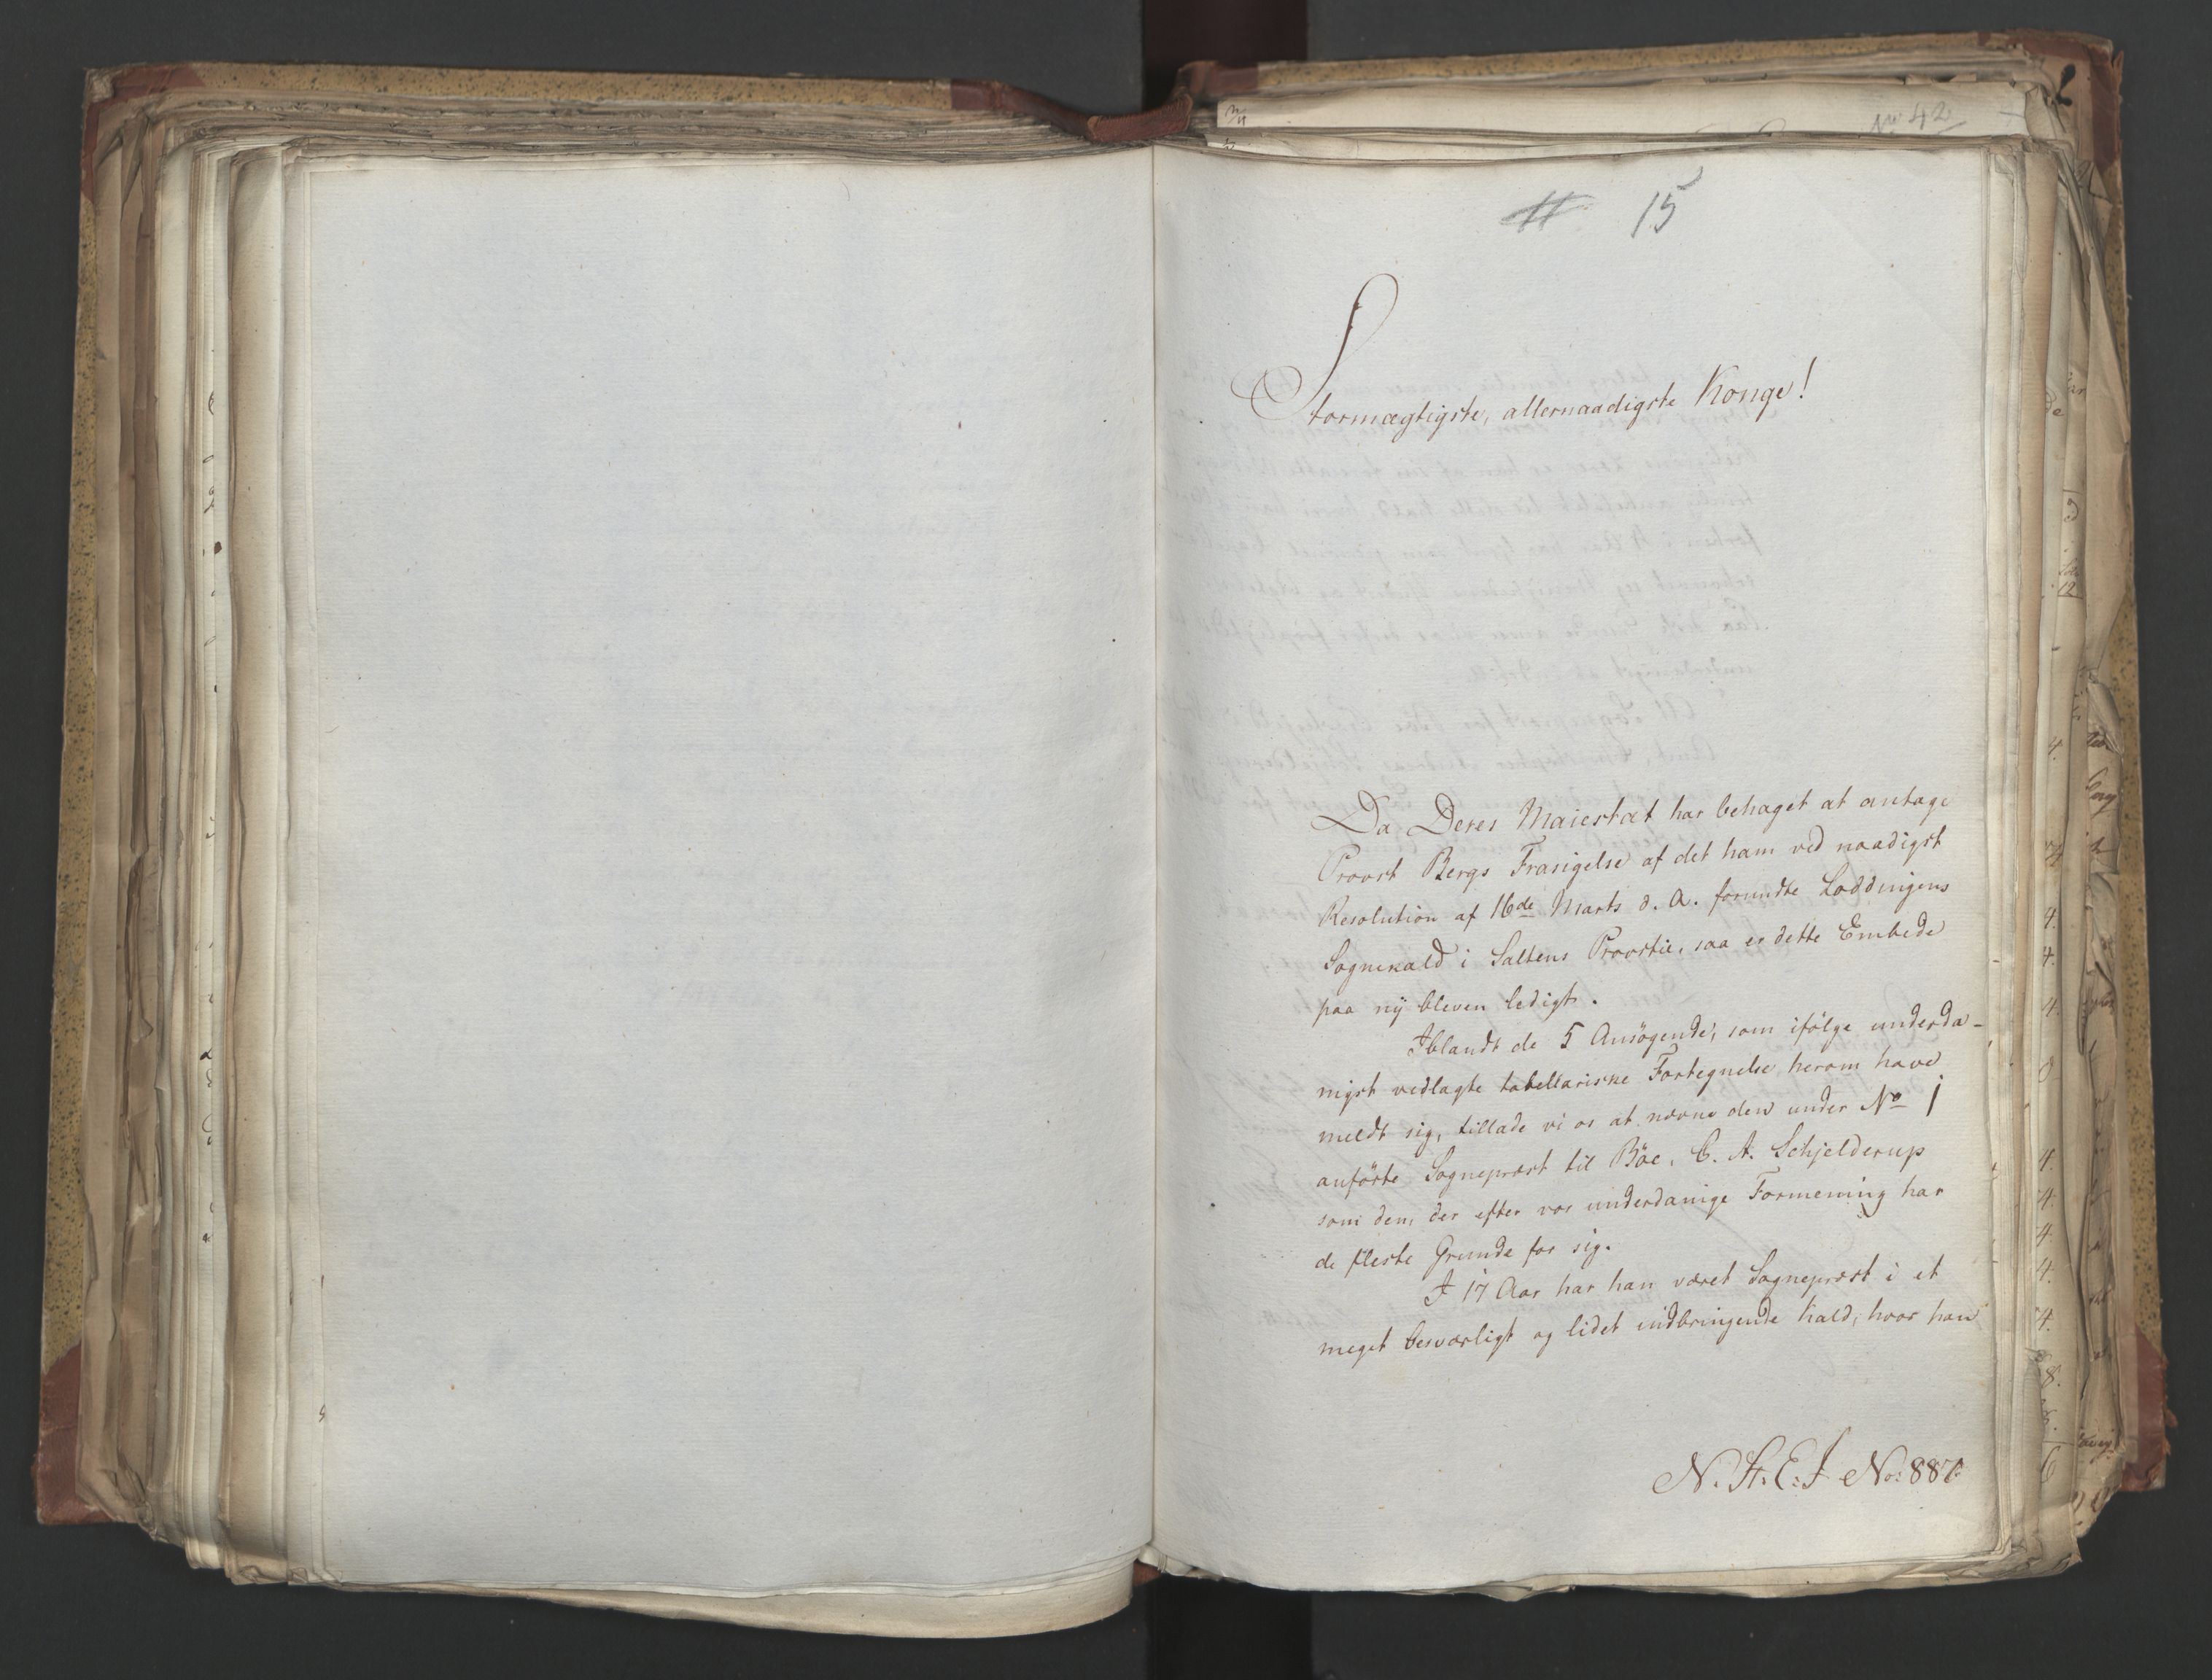 No 42
15
Stormægtigste, allernaadigste Konge!
Da Deres Maiestæt har behaget at antage
Provst Bergs Frasigelse af det ham ved naadigst
Resolution af 16de Marts d. A. forundte Loddingens
Sognekald i Saltens Provstie, saa er dette Embede
paa nÿ bleven ledigt.
Iblandt de 5 Ansögende, som ifölge underda-
nigst vedlagte tabellariske Fortegnelse herom have
meldt sig, tillade vi os at nævne den under No 1
anförte Sognepræst til Böe, C. A. Schjelderup
som den, der efter vor underdanige Formening har
de fleste Grunde for sig.
I 17 Aar har han været Sognepræst i et
meget besværligt og lidet indbringende Kald, hvor han
N. St. E. J No: 887.